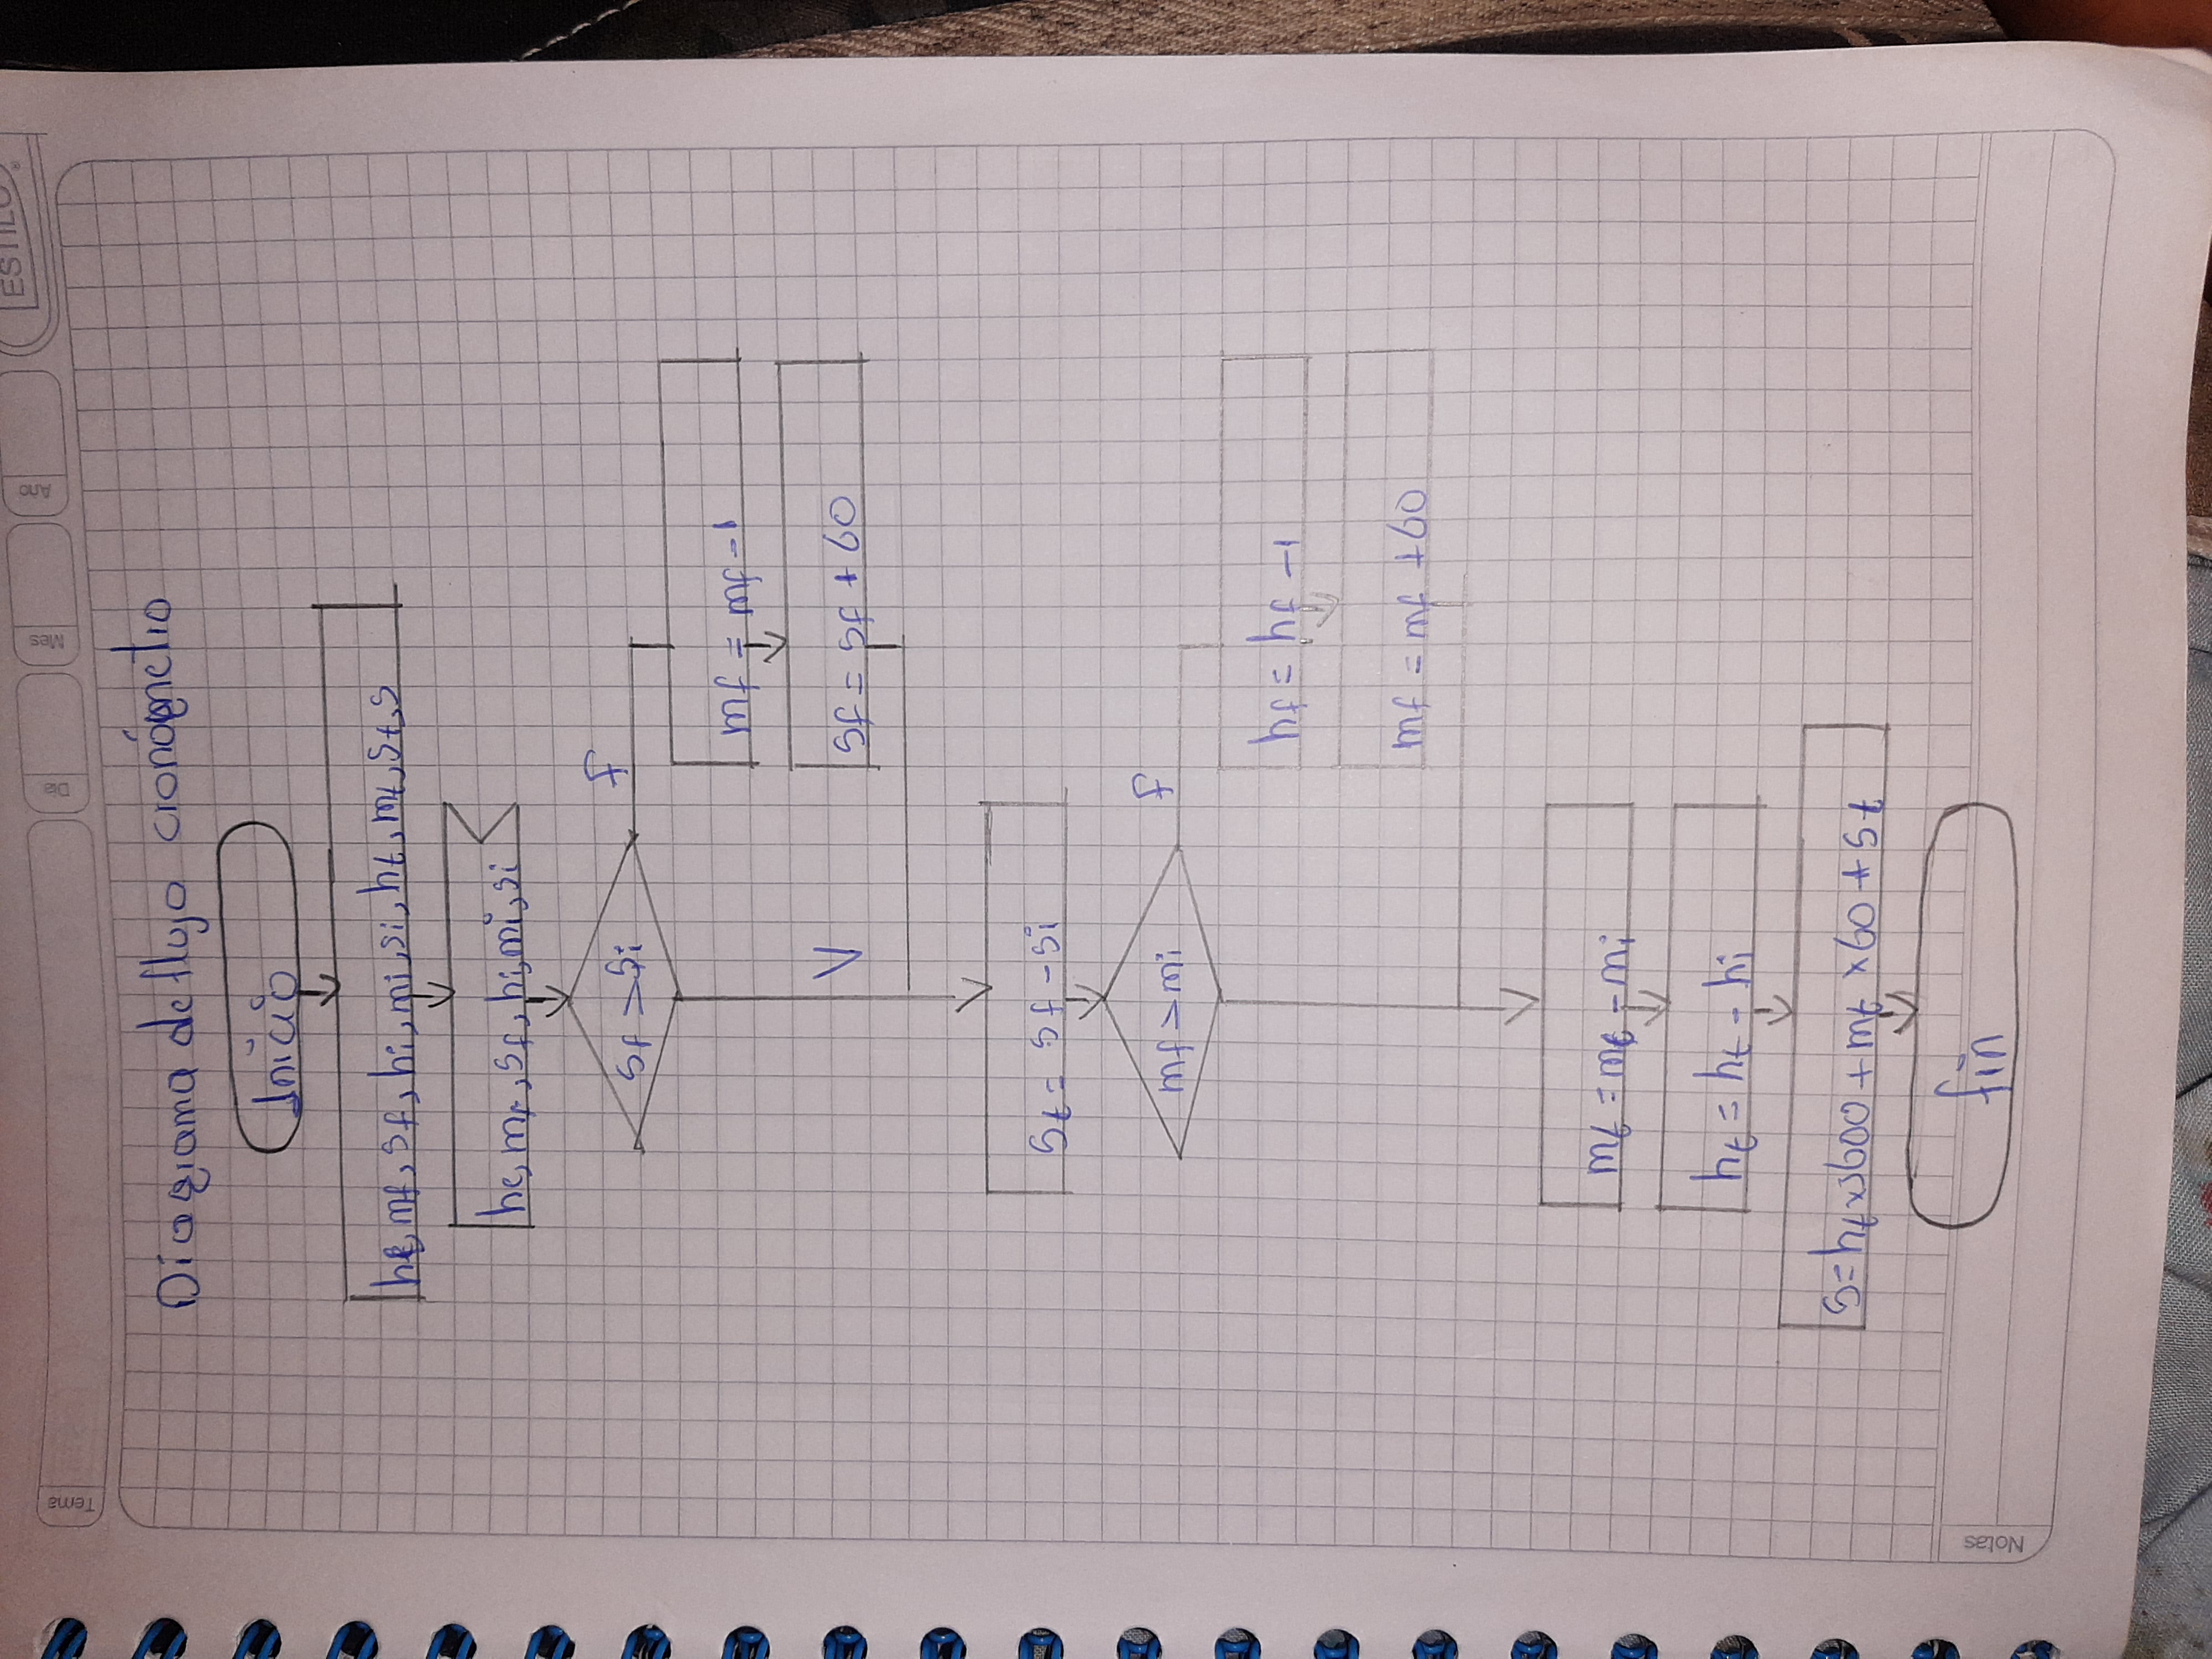 Tema
Dia
Mes
Ano
ESTILO
Diagrama de flujo cronómetro
Inicio
hf, mf, sf, hi, mi, si, ht, mt, st, s
hf, mf, sf, hi, mi, si
sf > si
f
mf = mf - 1
V
sf = sf + 60
st = sf - si
mf > mi
f
hf = hf - 1
mf = mf + 60
mt = mt - mi
ht = ht - hi
s = ht x 3600 + mt x 60 + st
fin
Notas